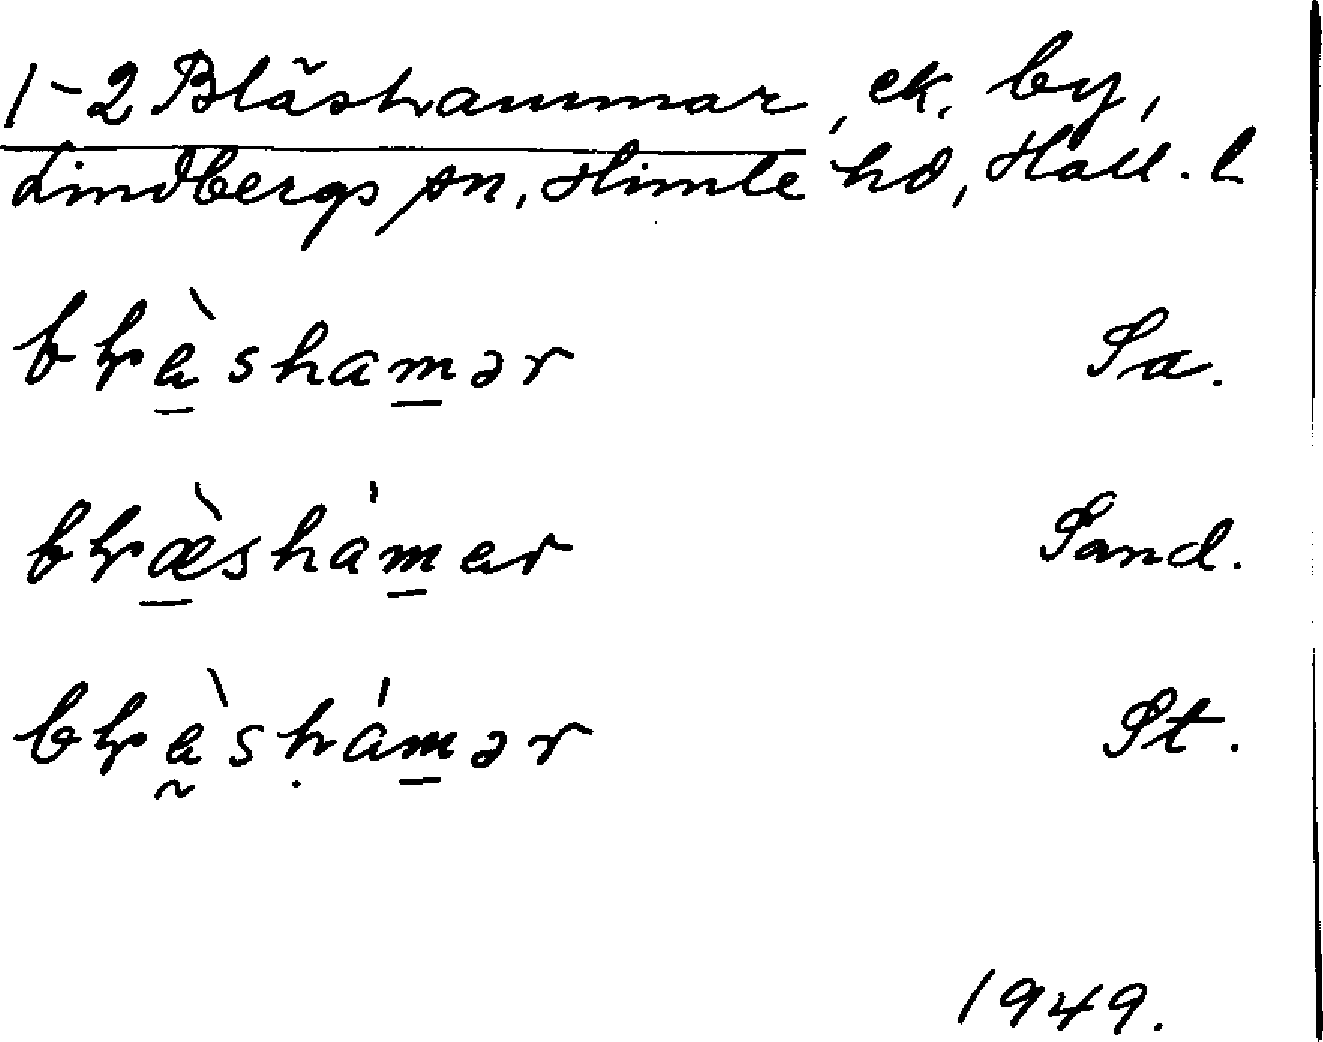 1-2 Blãshammar, ek. by,
Lindbergs sn, Himle hd, Hall. l.
bɫà̲sham̲ər Sa.
bɫæ̲̀shám̲ar Sand.
bɫà̰sḥám̲ər St.
1949.